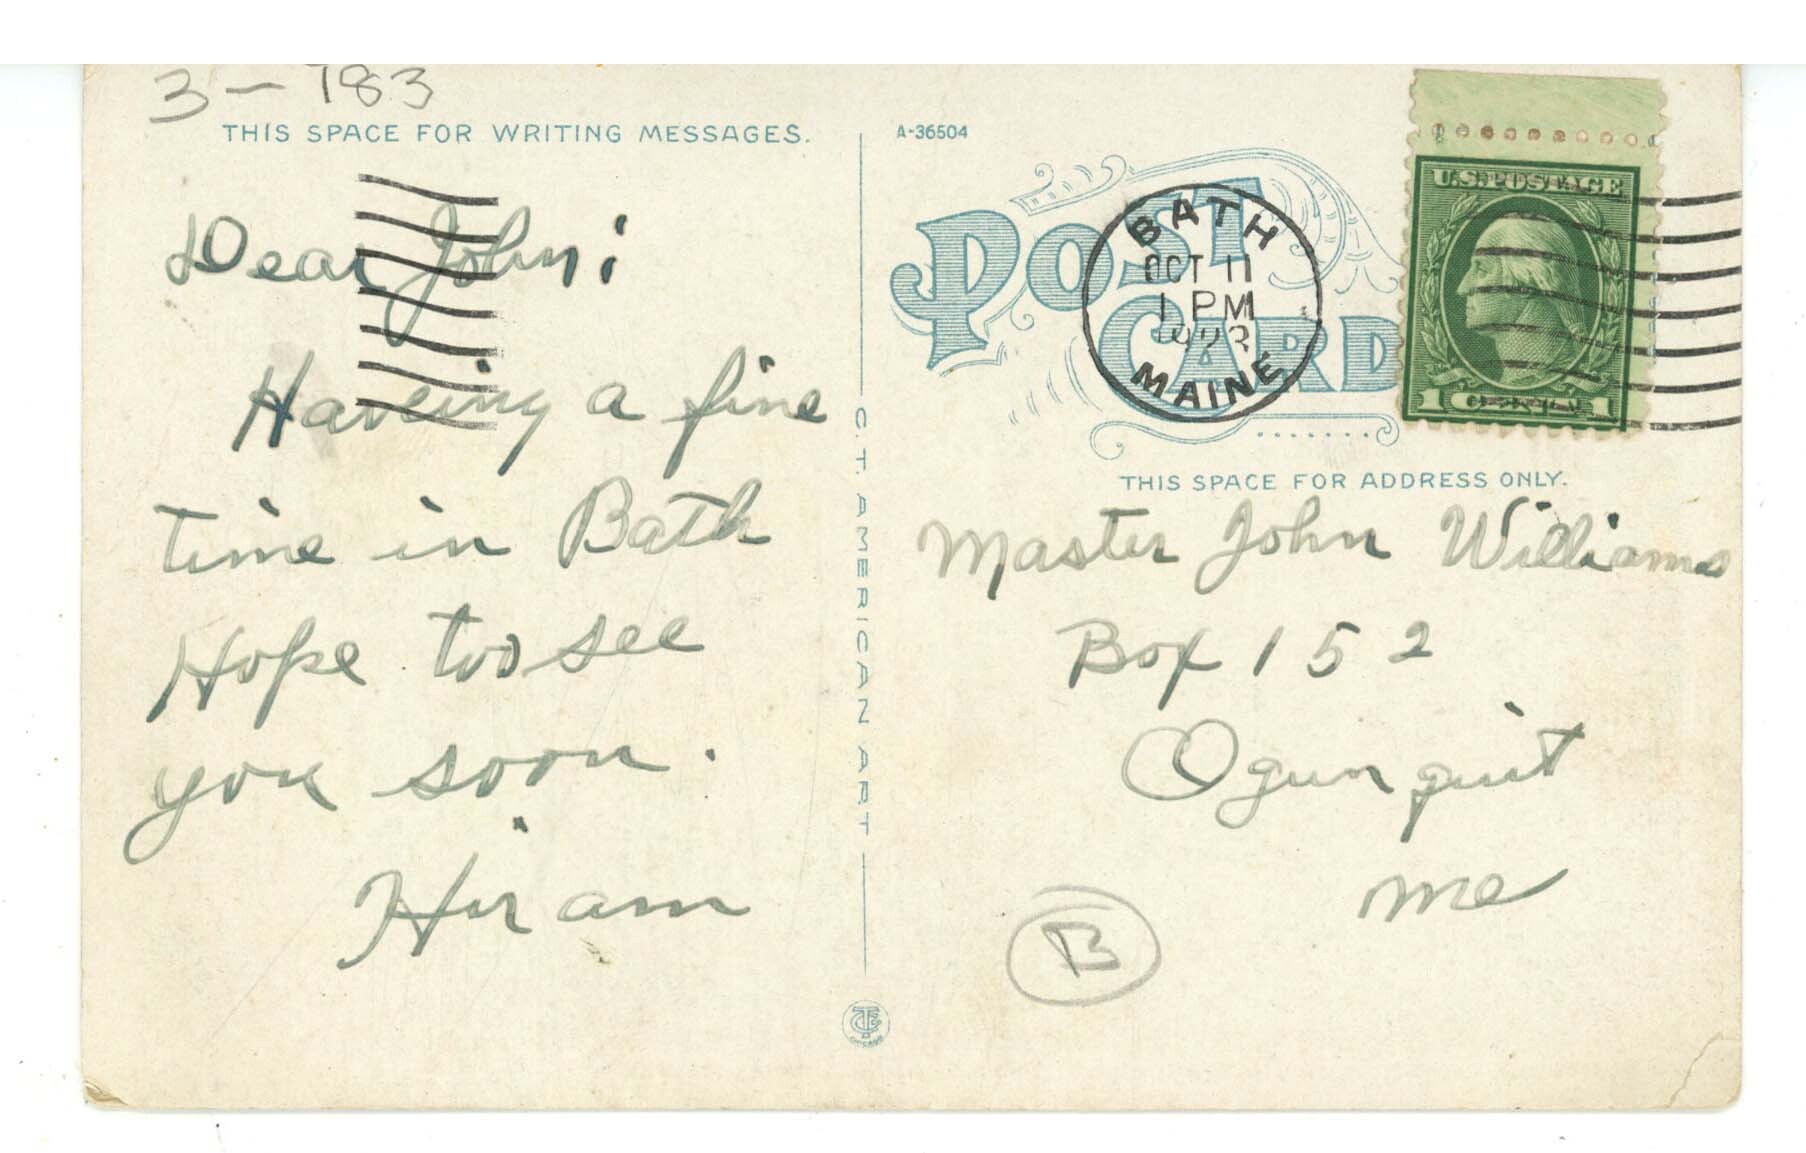 3-783
THIS SPACE FOR WRITING MESSAGES.
Dear John:
Having a fine
time in Bath
Hope too see
you soon.
Hiram
C. T. AMERICAN ART
A-36504
POST
CARD
BATH
OCT 11
1 PM
1923
MAINE
U.S. POSTAGE
1 CENT 1
THIS SPACE FOR ADDRESS ONLY.
Master John Williams
Box 152
Ogunquit
Me
B